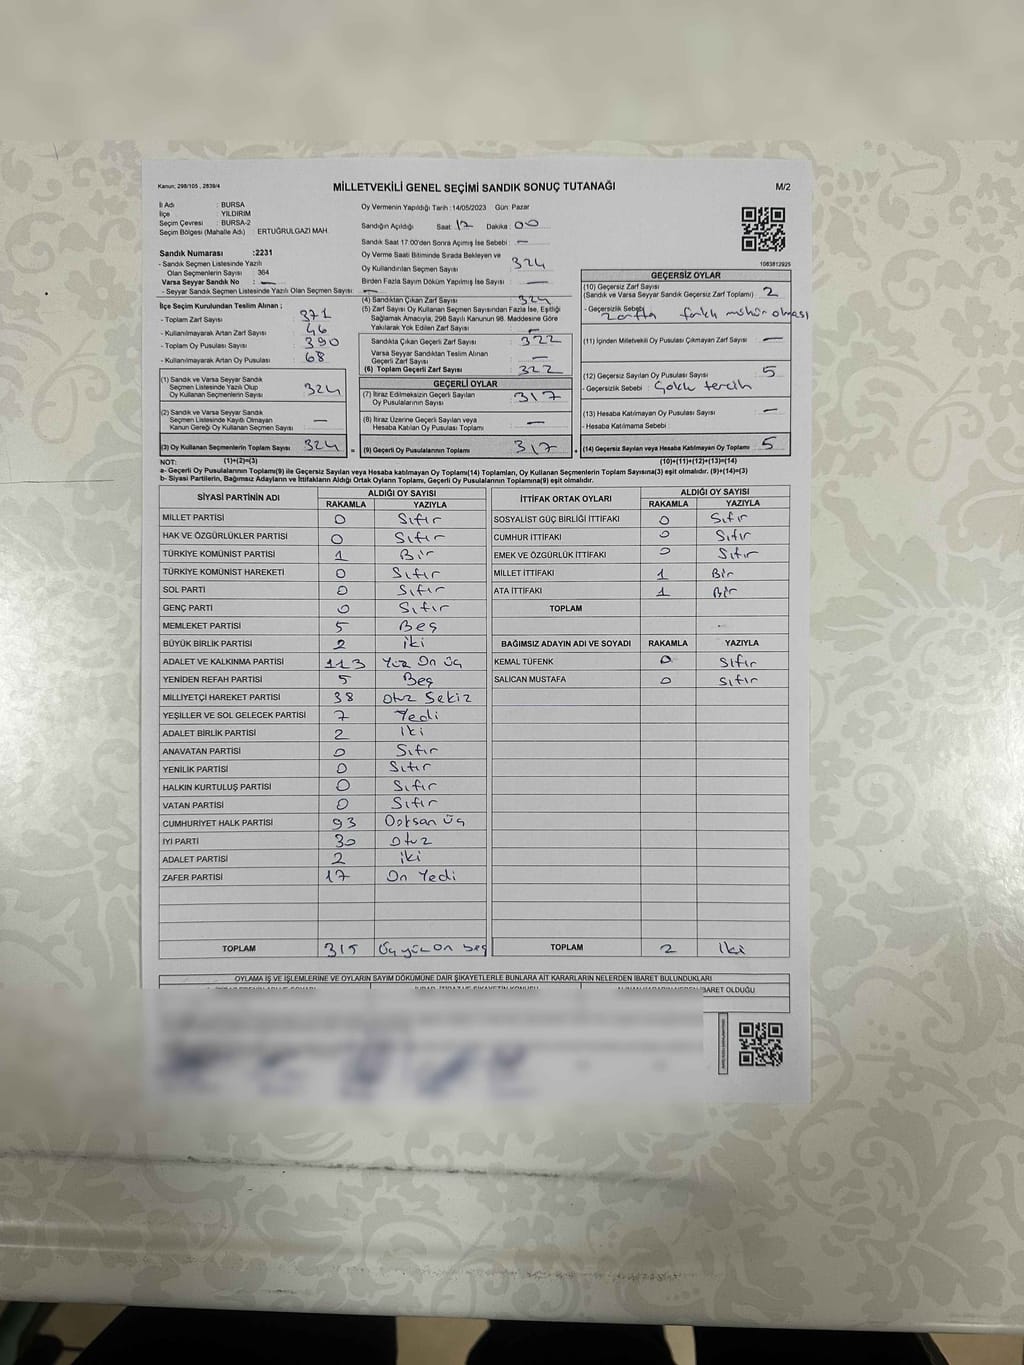 Kanun: 298/105 , 2839/4
MİLLETVEKİLİ GENEL SEÇİMİ SANDIK SONUÇ TUTANAĞI
M/2
İl Adı : BURSA
İlçe : YILDIRIM
Seçim Çevresi : BURSA-2
Seçim Bölgesi (Mahalle Adı) : ERTUĞRULGAZİ MAH.
Sandık Numarası :2231
- Sandık Seçmen Listesinde Yazılı
Olan Seçmenlerin Sayısı 364
Varsa Seyyar Sandık No : —
- Seyyar Sandık Seçmen Listesinde Yazılı Olan Seçmen Sayısı: —
İlçe Seçim Kurulundan Teslim Alınan ;
- Toplam Zarf Sayısı 371
- Kullanılmayarak Artan Zarf Sayısı 46
- Toplam Oy Pusulası Sayısı 390
- Kullanılmayarak Artan Oy Pusulası 68
(1) Sandık ve Varsa Seyyar Sandık
Seçmen Listesinde Yazılı Olup
Oy Kullanan Seçmenlerin Sayısı 324
(2) Sandık ve Varsa Seyyar Sandık
Seçmen Listesinde Kayıtlı Olmayan
Kanun Gereği Oy Kullanan Seçmen Sayısı —
(3) Oy Kullanan Seçmenlerin Toplam Sayısı 324
(1)+(2)=(3)
Oy Vermenin Yapıldığı Tarih :14/05/2023 Gün: Pazar
Sandığın Açıldığı Saat: 17 Dakika : 00
Sandık Saat 17:00'den Sonra Açımış İse Sebebi : —
Oy Verme Saati Bitiminde Sırada Bekleyen ve
Oy Kullandırılan Seçmen Sayısı 324
Birden Fazla Sayım Döküm Yapılmış İse Sayısı : —
(4) Sandıktan Çıkan Zarf Sayısı 324
(5) Zarf Sayısı Oy Kullanan Seçmen Sayısından Fazla İse, Eşitliği
Sağlamak Amacıyla, 298 Sayılı Kanunun 98. Maddesine Göre
Yakılarak Yok Edilen Zarf Sayısı —
Sandıkta Çıkan Geçerli Zarf Sayısı: 322
Varsa Seyyar Sandıktan Teslim Alınan
Geçerli Zarf Sayısı: —
(6) Toplam Geçerli Zarf Sayısı: 322
GEÇERLİ OYLAR
(7) İtiraz Edilmeksizin Geçerli Sayılan
Oy Pusulalarının Sayısı: 317
(8) İtiraz Üzerine Geçerli Sayılan veya
Hesaba Katılan Oy Pusulası Toplamı —
= (9) Geçerli Oy Pusulalarının Toplamı 317
1063812925
GEÇERSİZ OYLAR
(10) Geçersiz Zarf Sayısı
(Sandık ve Varsa Seyyar Sandık Geçersiz Zarf Toplamı) 2
- Geçersizlik Sebebi: Zarfta farklı mühür olması
(11) İçinden Milletvekili Oy Pusulası Çıkmayan Zarf Sayısı —
(12) Geçersiz Sayılan Oy Pusulası Sayısı 5
- Geçersizlik Sebebi : Çoklu tercih
(13) Hesaba Katılmayan Oy Pusulası Sayısı —
- Hesaba Katılmama Sebebi :
+ (14) Geçersiz Sayılan veya Hesaba Katılmayan Oy Toplamı 5
(10)+(11)+(12)+(13)=(14)
NOT:
a- Geçerli Oy Pusulalarının Toplamı(9) ile Geçersiz Sayılan veya Hesaba katılmayan Oy Toplam(14) Toplamları, Oy Kullanan Seçmenlerin Toplam Sayısına(3) eşit olmalıdır. (9)+(14)=(3)
b- Siyasi Partilerin, Bağımsız Adayların ve İttifakların Aldığı Ortak Oyların Toplamı, Geçerli Oy Pusulalarının Toplamına(9) eşit olmalıdır.
SİYASİ PARTİNİN ADI ALDIĞI OY SAYISI
RAKAMLA YAZIYLA
MİLLET PARTİSİ 0 Sıfır
HAK VE ÖZGÜRLÜKLER PARTİSİ 0 Sıfır
TÜRKİYE KOMÜNİST PARTİSİ 1 Bir
TÜRKİYE KOMÜNİST HAREKETİ 0 Sıfır
SOL PARTİ 0 Sıfır
GENÇ PARTİ 0 Sıfır
MEMLEKET PARTİSİ 5 Beş
BÜYÜK BİRLİK PARTİSİ 2 iki
ADALET VE KALKINMA PARTİSİ 113 Yüz On üç
YENİDEN REFAH PARTİSİ 5 Beş
MİLLİYETÇİ HAREKET PARTİSİ 38 Otuz Sekiz
YEŞİLLER VE SOL GELECEK PARTİSİ 7 Yedi
ADALET BİRLİK PARTİSİ 2 iki
ANAVATAN PARTİSİ 0 Sıfır
YENİLİK PARTİSİ 0 Sıfır
HALKIN KURTULUŞ PARTİSİ 0 Sıfır
VATAN PARTİSİ 0 Sıfır
CUMHURİYET HALK PARTİSİ 93 Doksan üç
İYİ PARTİ 30 Otuz
ADALET PARTİSİ 2 iki
ZAFER PARTİSİ 17 On Yedi
TOPLAM 315 Üç yüz On beş
İTTİFAK ORTAK OYLARI ALDIĞI OY SAYISI
RAKAMLA YAZIYLA
SOSYALİST GÜÇ BİRLİĞİ İTTİFAKI 0 Sıfır
CUMHUR İTTİFAKI 0 Sıfır
EMEK VE ÖZGÜRLÜK İTTİFAKI 0 Sıfır
MİLLET İTTİFAKI 1 Bir
ATA İTTİFAKI 1 Bir
TOPLAM
BAĞIMSIZ ADAYIN ADI VE SOYADI RAKAMLA YAZIYLA
KEMAL TÜFENK 0 Sıfır
SALİCAN MUSTAFA 0 Sıfır
TOPLAM 2 İki
OYLAMA İŞ VE İŞLEMLERİNE VE OYLARIN SAYIM DÖKÜMÜNE DAİR ŞİKAYETLERLE BUNLARA AİT KARARLARIN NELERDEN İBARET BULUNDUKLARI
İBARET OLDUĞU